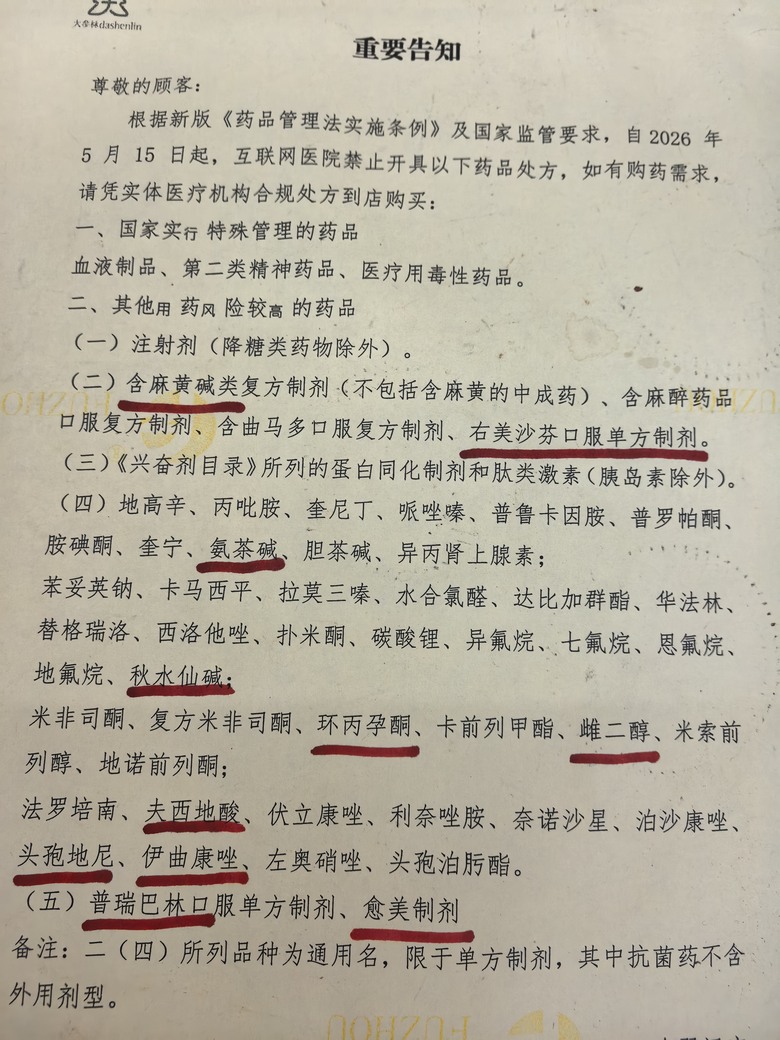 大参林dashenlin
重要告知
尊敬的顾客：
根据新版《药品管理法实施条例》及国家监管要求，自2026 年
5 月 15 日起，互联网医院禁止开具以下药品处方，如有购药需求，
请凭实体医疗机构合规处方到店购买：
一、国家实行 特殊管理的药品
血液制品、第二类精神药品、医疗用毒性药品。
二、其他用 药风 险较高 的药品
（一）注射剂（降糖类药物除外）。
（二）含麻黄碱类复方制剂（不包括含麻黄的中成药）、含麻醉药品
口服复方制剂、含曲马多口服复方制剂、右美沙芬口服单方制剂。
（三）《兴奋剂目录》所列的蛋白同化制剂和肽类激素（胰岛素除外）。
（四）地高辛、丙吡胺、奎尼丁、哌唑嗪、普鲁卡因胺、普罗帕酮、
胺碘酮、奎宁、氨茶碱、胆茶碱、异丙肾上腺素；
苯妥英钠、卡马西平、拉莫三嗪、水合氯醛、达比加群酯、华法林、
替格瑞洛、西洛他唑、扑米酮、碳酸锂、异氟烷、七氟烷、恩氟烷、
地氟烷、秋水仙碱；
米非司酮、复方米非司酮、环丙孕酮、卡前列甲酯、雌二醇、米索前
列醇、地诺前列酮；
法罗培南、夫西地酸、伏立康唑、利奈唑胺、奈诺沙星、泊沙康唑、
头孢地尼、伊曲康唑、左奥硝唑、头孢泊肟酯。
（五）普瑞巴林口服单方制剂、愈美制剂
备注：二（四）所列品种为通用名，限于单方制剂，其中抗菌药不含
外用剂型。
FUZHOU